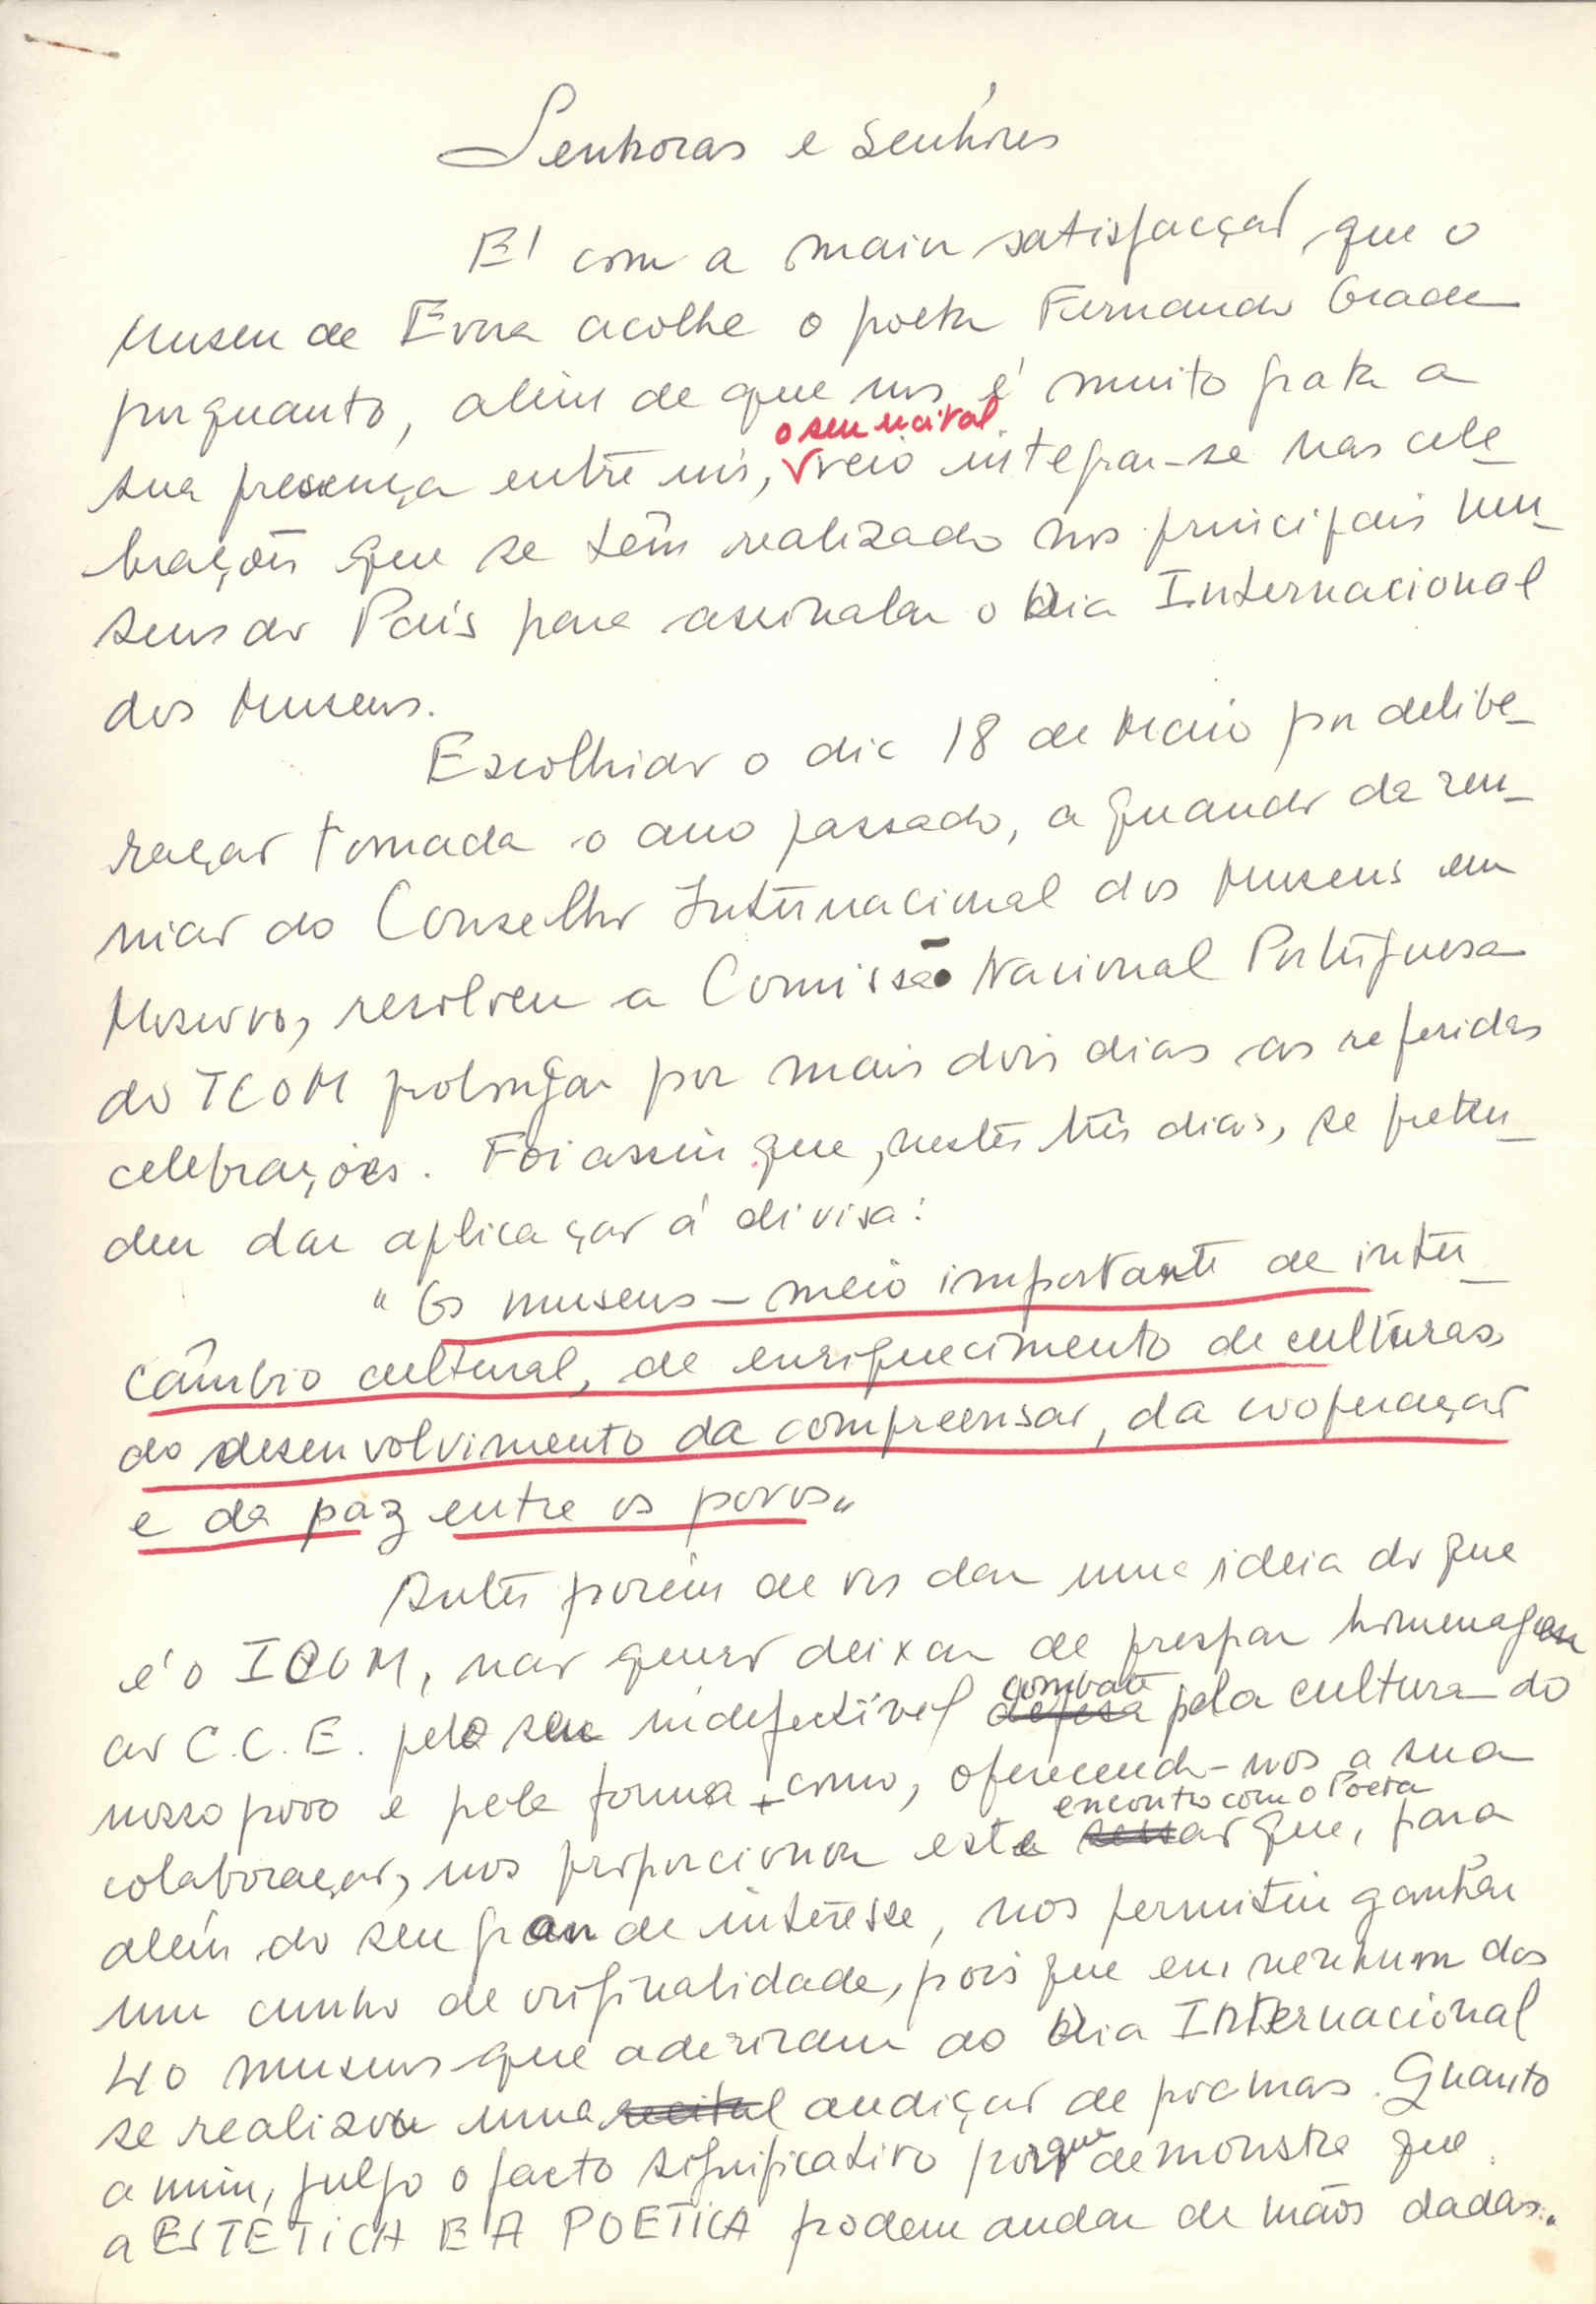 Senhoras e Senhores
E' com a maior satisfacção que o
Museu de Evora acolhe o poeta Fernando Grade
porquanto, além de que nos é muito grata a
o seu recital
sua presença entre nós, veio integrar-se nas cele_
brações que se têm realizado nos principais Mu_
seus do País para assinalar o Dia Internacional
dos Museus.
Escolhido o dia 18 de Maio por delibe_
ração tomada o ano passado, a quando da reu_
nião do Conselho Internacional dos Museus em
Moscovo, resolveu a Comissão Nacional Portuguesa
do ICOM prolongar por mais dois dias as referidas
celebrações. Foi assim que, nestes três dias, se preten_
deu dar aplicação á divisa:
"Os museus – meio importante de inter_
câmbio cultural, de enriquecimento de culturas
do desenvolvimento da compreensão, da cooperação
e da paz entre os povos"
Antes porém de vos dar uma ideia do que
é o ICOM, não quero deixar de prestar homenagem
combate
ao C.C.E. pelo seu indefectível defesa pela cultura do
nosso povo e pela forma como, oferecendo-nos a sua
encontro com o Poeta
colaboração, nos proporcionou este sessão que, para
além do seu grande interesse, nos permitiu ganhar
um cunho de originalidade, pois que em nenhum dos
40 museus que aderiram ao Dia Internacional
se realizou uma recital audição de poemas. Quanto
a mim, julgo o facto significativo porque demonstra que
a ESTETICA E A POETICA podem andar de mãos dadas.